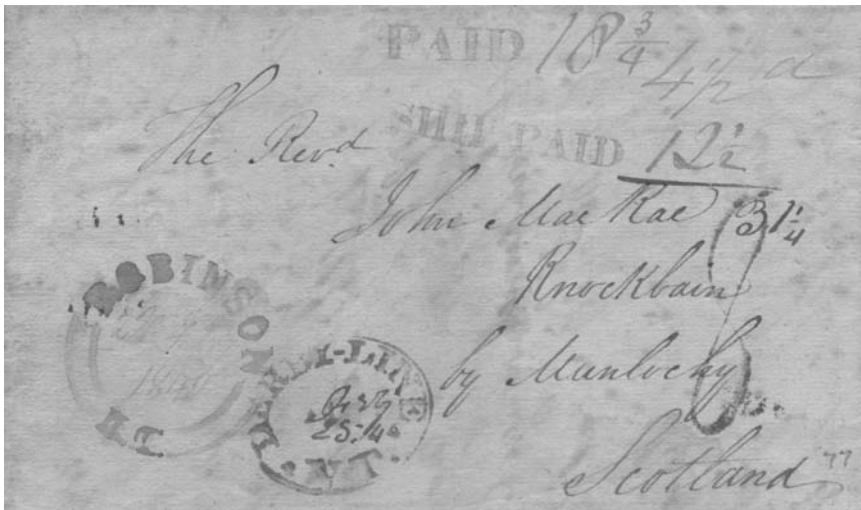 PAID 18 3/4
4 1/2 d
SHIP PAID 12 1/2
The Revd
John MacRae 31 1/4
Knockbain
by Munlochy
Scotland
ROBINSON
DERBY-LINE
VT.